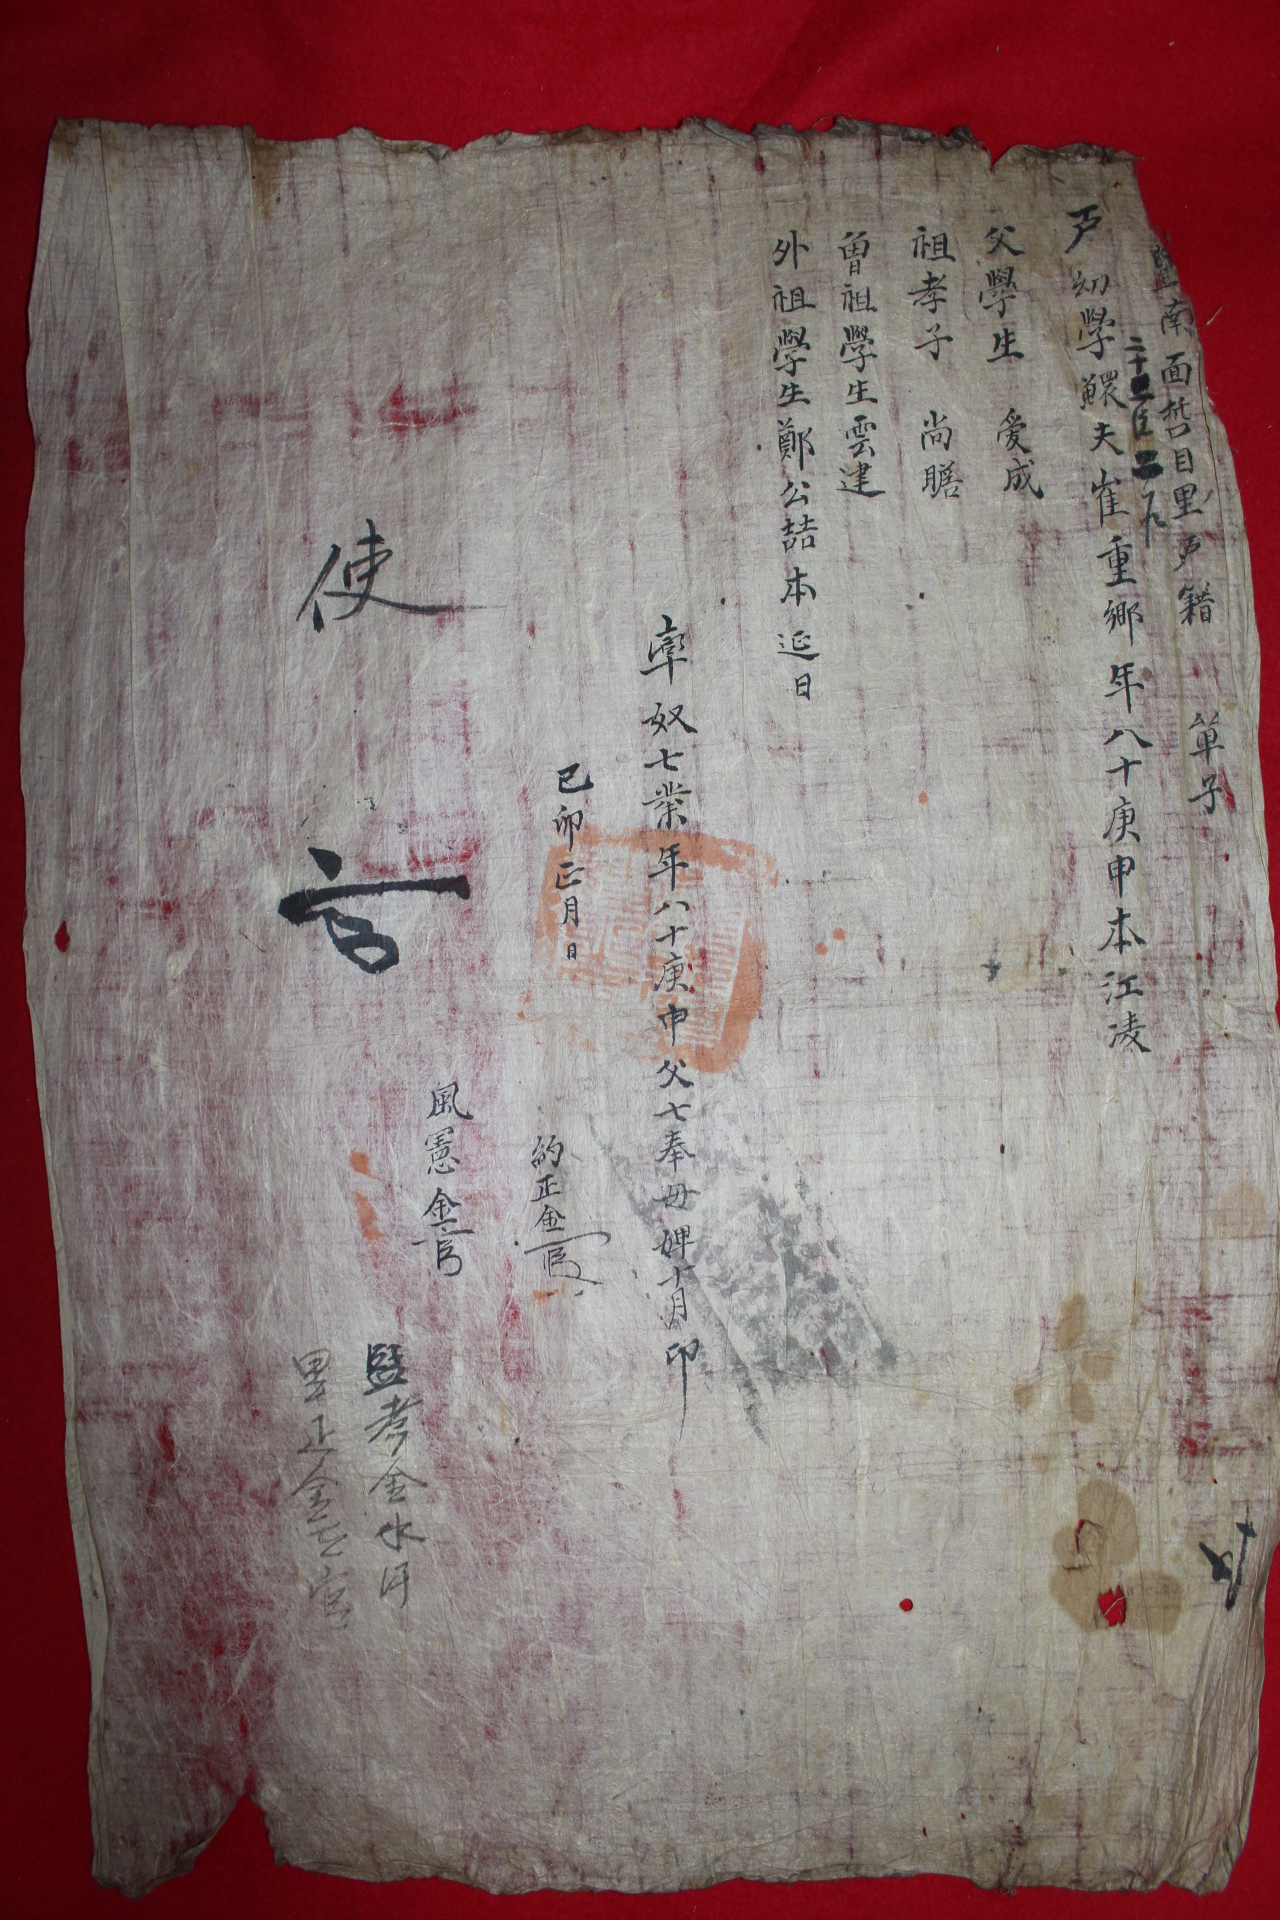 南面哲目里戶籍單子
戶幼學鰥夫崔重鄉年八十庚申本江凌
父學生愛成
祖孝子尚瞻
曾祖學生雲建
外祖學生鄭公喆本延日
率奴七業年八十庚申父七奉母婢十月印
己卯正月日
約正金
風憲金
監考金水
里正金
使